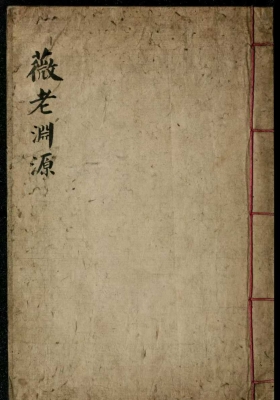 薇老淵源